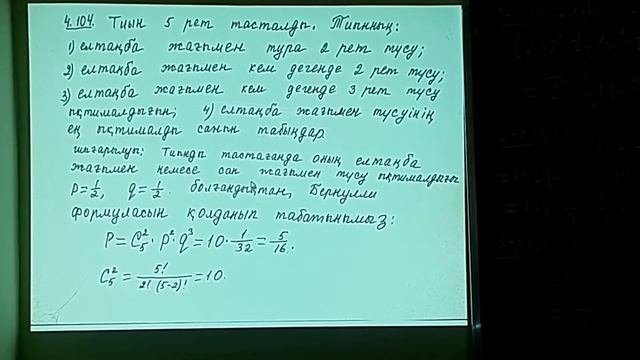 4.104. Тиын 5 рет тасталды. Тиынның:
1) елтаңба жағымен тура 2 рет түсу;
2) елтаңба жағымен кем дегенде 2 рет түсу;
3) елтаңба жағымен кем дегенде 3 рет түсу
ықтималдығын; 4) елтаңба жағымен түсуінің
ең ықтималды санын табыңдар.
Шығарылуы: Тиынды тастағанда оның елтаңба
жағымен немесе сан жағымен түсу ықтималдығы
P=1/2, q=1/2. болғандықтан, Бернулли
формуласын қолданып табатынымыз:
P = C₅² · p² q³ = 10 · 1/32 = 5/16.
C₅² = 5!/(2! (5-2)!) = 10.